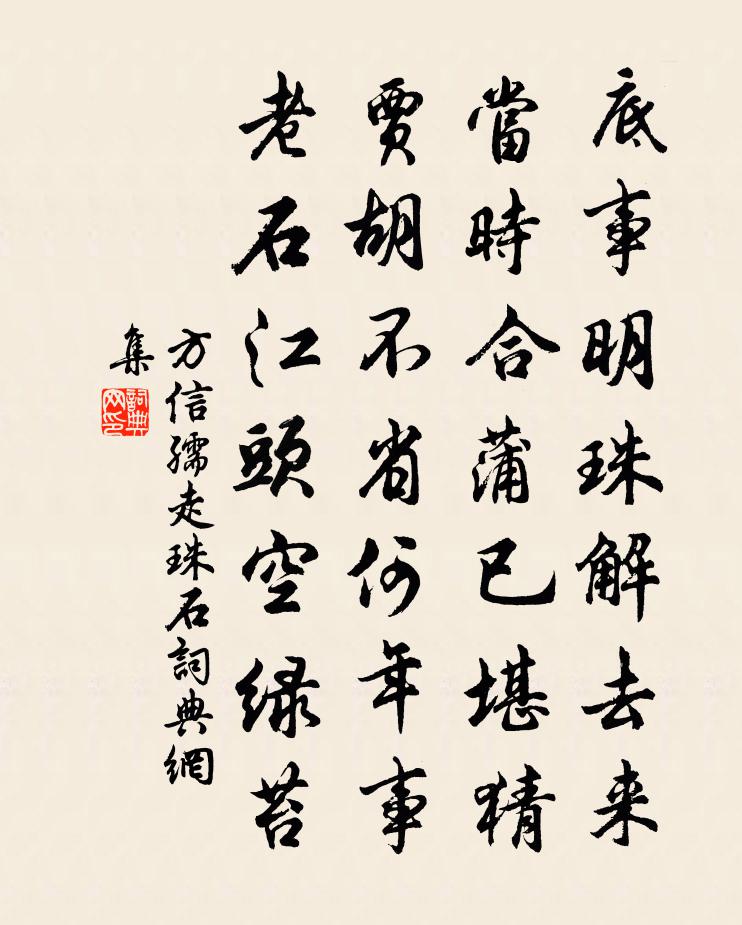 底事明珠解去来
當時合蒲已堪猜
賈胡不省何年事
老石江頭空绿苔
方信孺走珠石詞典網
集
詞典网印